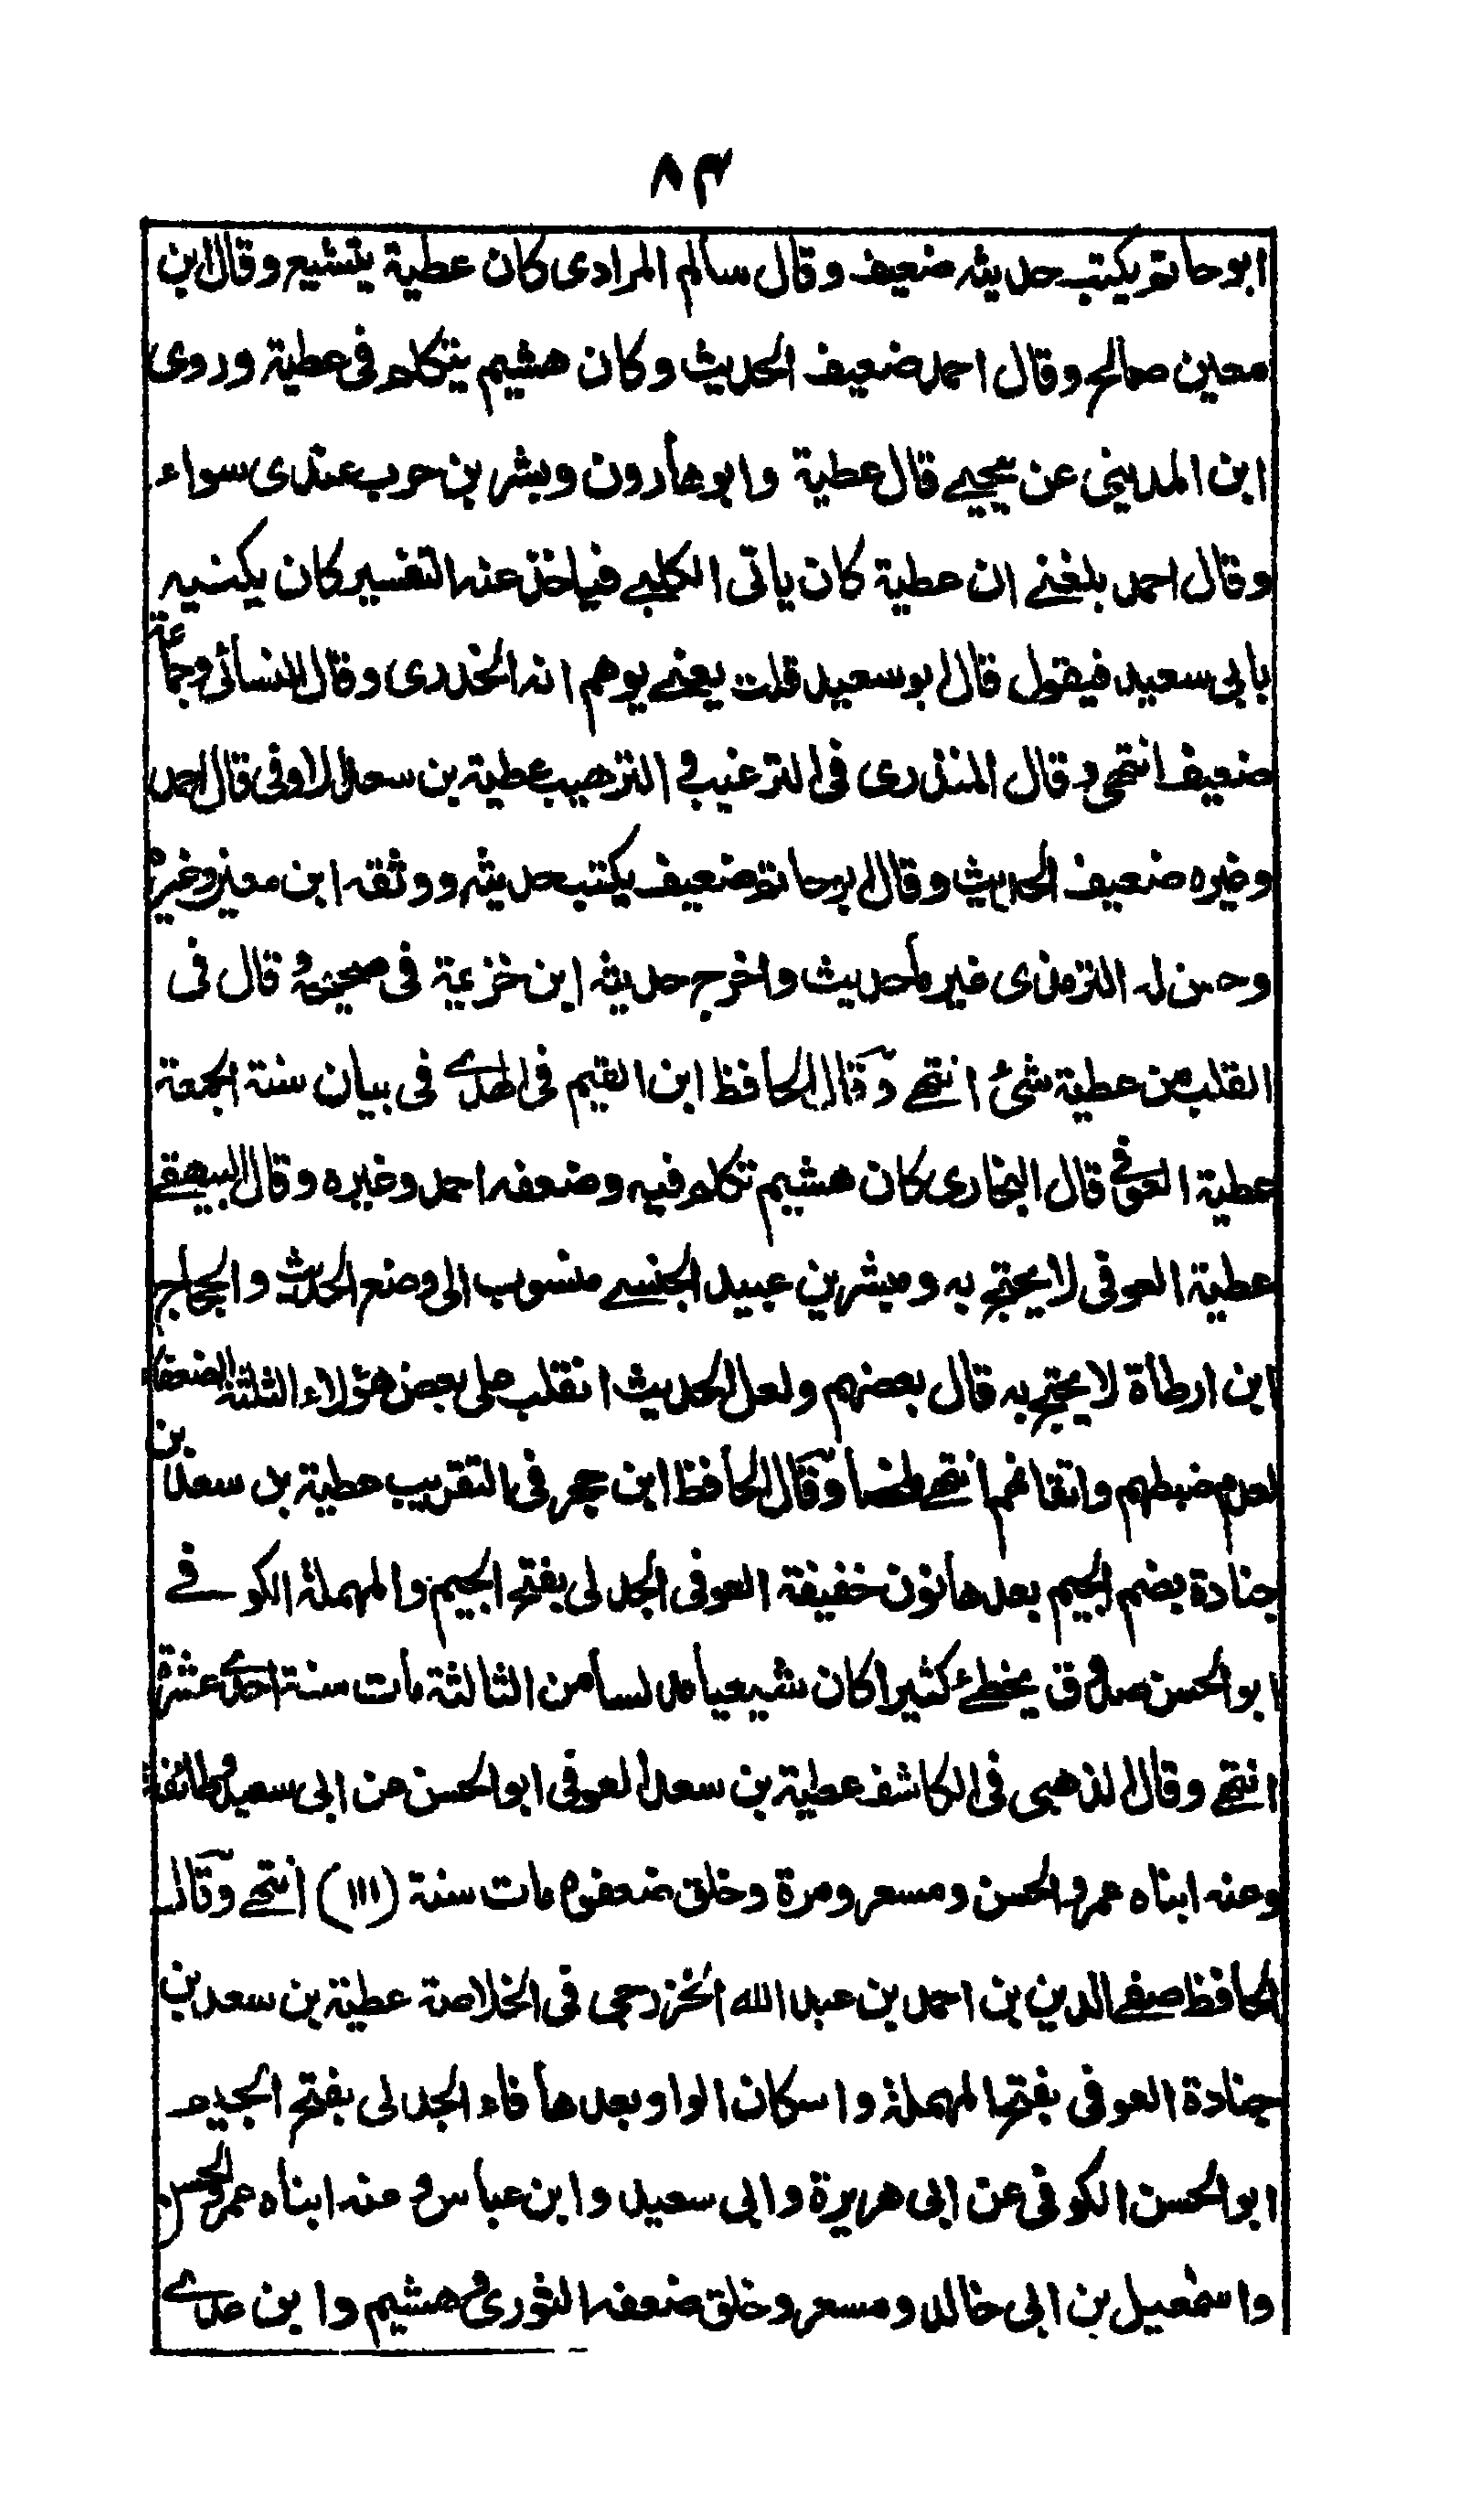 ٨٣
ابو حاتم يكتب حديثه ضعيف وقال سالم المرادى كان عطية يتشيع وقال ابن
معين صالح وقال احمد ضعيف الحديث وكان هشيم يتكلم فى عطية وروى
ابن المدينى عن يحيى قال عطية وابو هارون وبشر بن حرب عندى سواء
وقال احمد بلغنى ان عطية كان ياتى الكلبى فياخذ عنه التفسير كان يكنيه
بابى سعيد فيقول قال ابو سعيد قلت يعنى يوهم انه الخدرى وقال النسائى وجماعة
ضعيف انتهى وقال المنذرى فى الترغيب والترهيب عطية بن سعد العوفى قال احمد
وغيره ضعيف الحديث وقال ابو حاتم ضعيف يكتب حديثه ووثقه ابن معين وغيره
وحسن له الترمذى غير ما حديث واخرج حديثه ابن خزيمة فى صحيحه وقال فى
القلب من عطية شئ انتهى وقال الحافظ ابن القيم فى الهدى فى بيان سنة الجمعة
عطية العوفى قال البخارى كان هشيم تكلم فيه وضعفه احمد وغيره وقال البيهقى
عطية العوفى لا يحتج به ومبشر بن عبيد الحبسى منسوب الى وضع الحديث والحجاج
ابن ارطاة لا يحتج به قال بعضهم ولعل الحديث انقلب على بعض هؤلاء الثلثة الضعفاء
لعدم ضبطهم واتقانهم انتهى ملخصا وقال الحافظ ابن حجر فى التقريب عطية بن سعد بن
جنادة بضم الجيم بعدها نون خفيفة العوفى الجدلى بفتح الجيم والمهملة الكوفى
ابو الحسن صدوق يخطئ كثيرا كان شيعيا مدلسا من الثالثة مات سنة احدى عشرة
انتهى وقال الذهبى فى الكاشف عطية بن سعد العوفى ابو الحسن عن ابى سعيد وطائفة
وعنه ابناه عمر والحسن ومسعر ومرة وخلق ضعفوه مات سنة (١١١) انتهى وقال
الحافظ صفى الدين بن احمد بن عبد الله الخزرجى فى الخلاصة عطية بن سعد بن
جنادة العوفى بفتح المهملة واسكان الواو بعدها فاء الجدلى بفتح الجيم
ابو الحسن الكوفى عن ابى هريرة وابى سعيد وابن عباس وعنه ابناه عمر والحسن
واسمعيل بن ابى خالد ومسعر وخلق ضعفه الثورى وهشيم وابن عدى